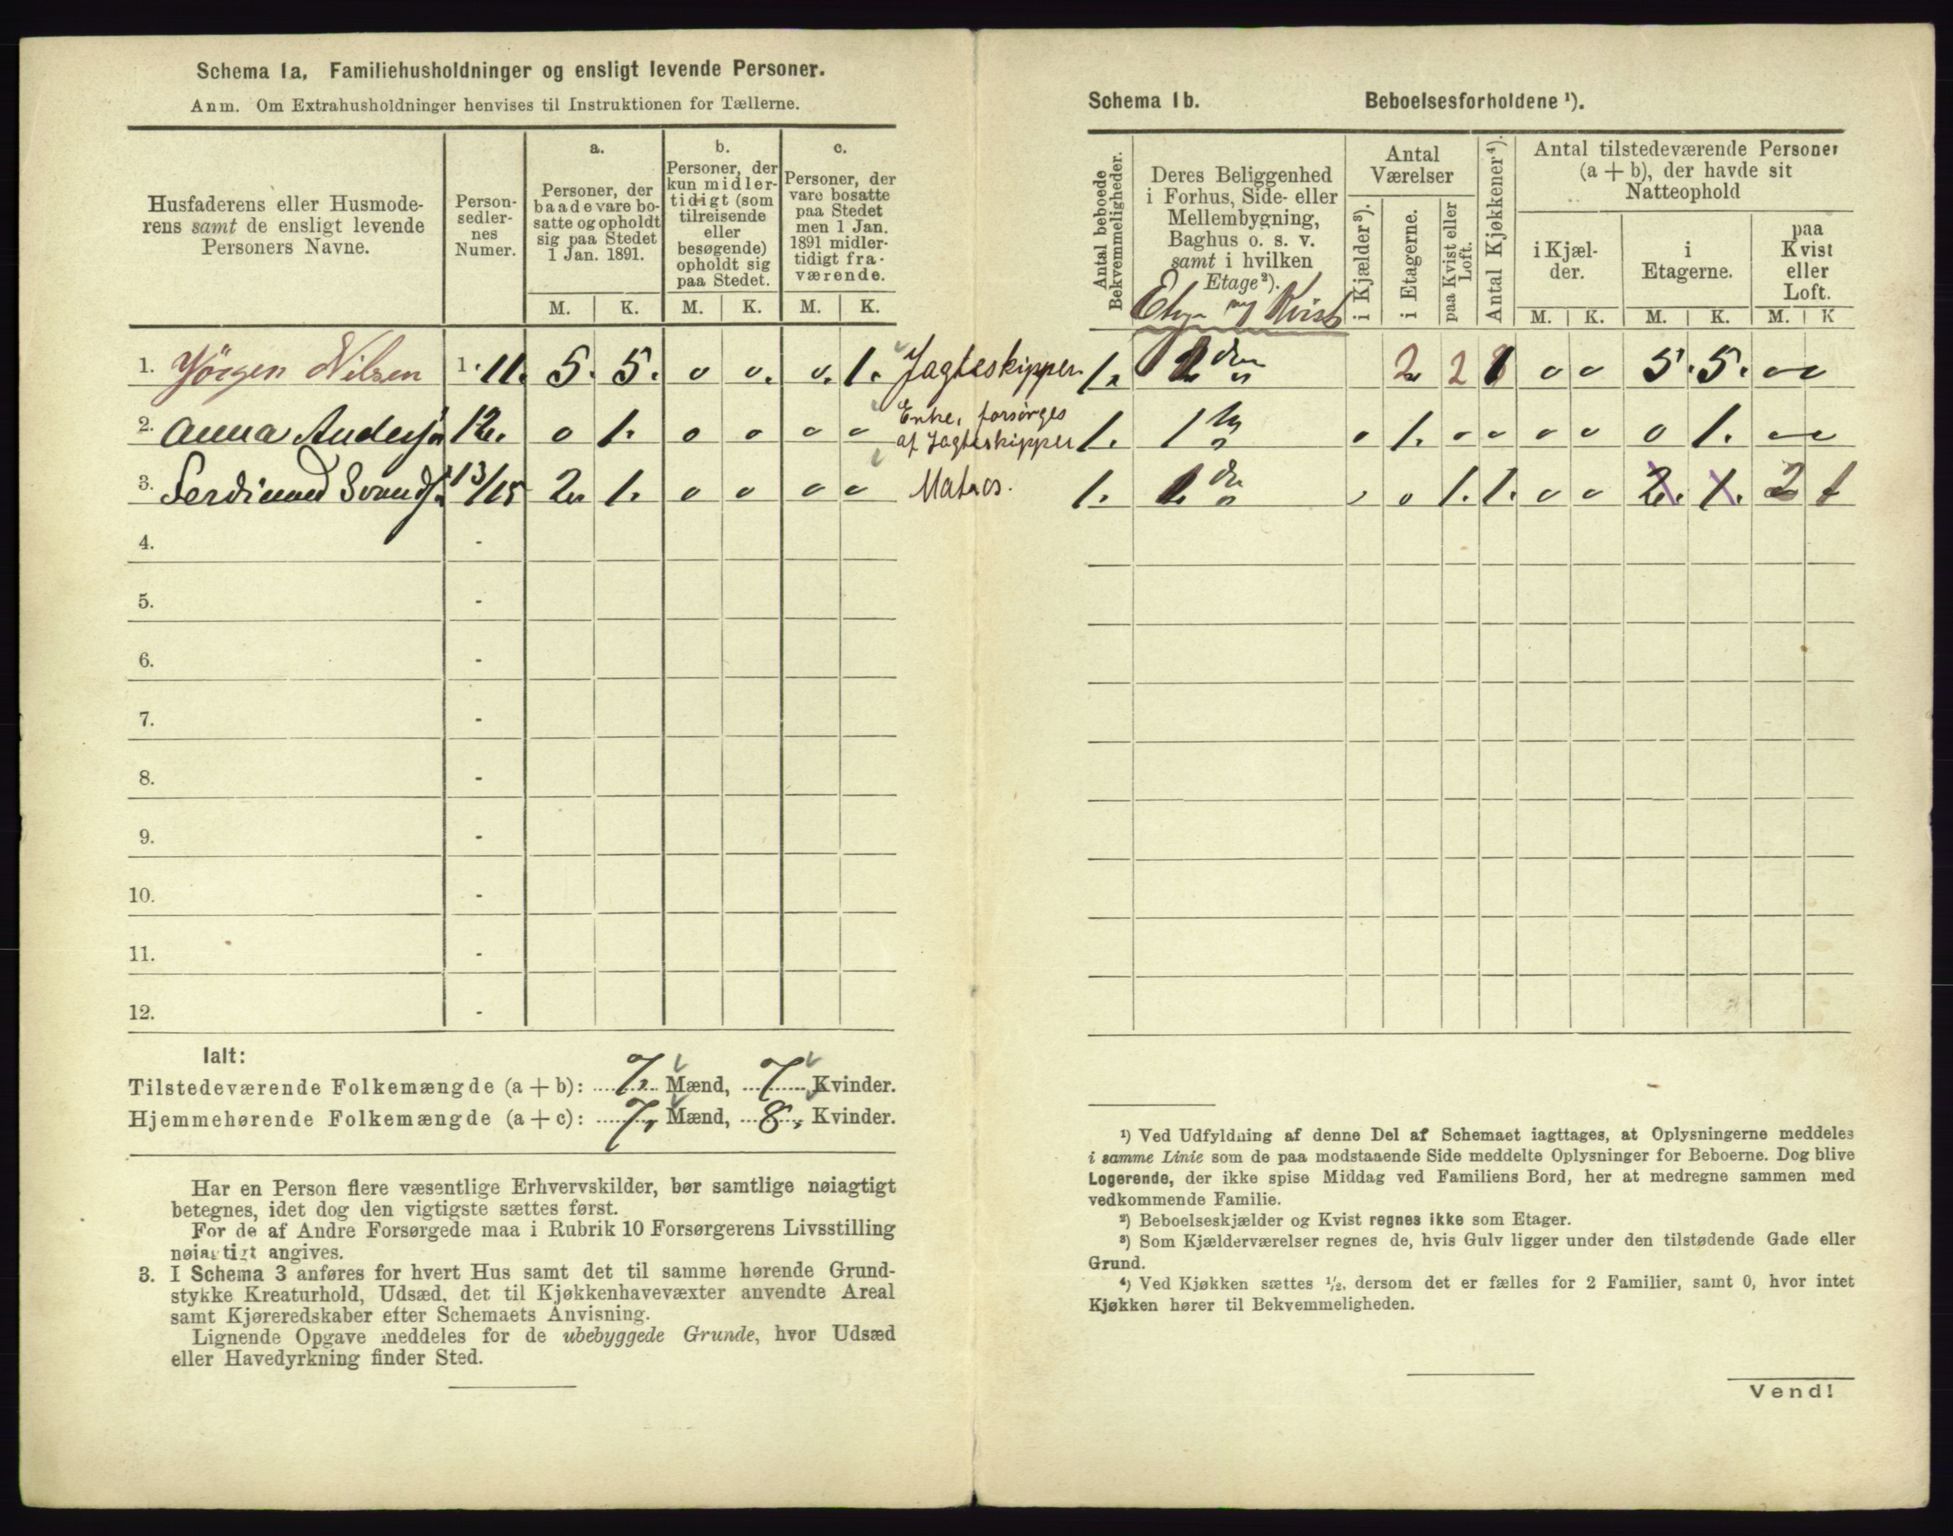 Schema 1a, Familiehusholdninger og ensligt levende Personer.
Anm. Om Extrahusholdninger henvises til Instruktionen for Tællerne.
Husfaderens eller Husmode-
rens samt de ensligt levende
Personers Navne.
Person-
sedler-
nes
Numer.
a.
Personer, der
baade vare bo-
satte og opholdt
sig paa Stedet
1 Jan. 1891.
b.
Personer, der
kun midler-
tidigt (som
tilreisende
eller
besøgende)
opholdt sig
paa Stedet.
c.
Personer, der
vare bosatte
paa Stedet
men 1 Jan.
1891 midler-
tidigt fra-
værende.
M. K. M. K. M. K.
1. Jörgen Nilsen 1.11. 5. 5. 0 0. 0. 1. Jagteskipper
2. Anna 12. 0 1. 0 0 0 0 Enke, forsørges
af Jagteskipper
3. Ferdinand 13/15 2 1. 0 0 0 0 Matros.
4. -
5. -
6. -
7. -
8. -
9. -
10. -
11. -
12. -
Ialt:
Tilstedeværende Folkemængde (a + b): 7. Mænd, 7 Kvinder.
Hjemmehørende Folkemængde (a + c): 7. Mænd, 8. Kvinder.
Har en Person flere væsentlige Erhvervskilder, bør samtlige nøiagtigt
betegnes, idet dog den vigtigste sættes først.
For de af Andre Forsørgede maa i Rubrik 10 Forsørgerens Livsstilling
nøiagtigt angives.
3. I Schema 3 anføres for hvert Hus samt det til samme hørende Grund-
stykke Kreaturhold, Udsæd, det til Kjøkkenhavevæxter anvendte Areal
samt Kjøreredskaber efter Schemaets Anvisning.
Lignende Opgave meddeles for de ubebyggede Grunde, hvor Udsæd
eller Havedyrkning finder Sted.
Schema 1b. Beboelsesforholdene ¹).
Antal beboede
Bekvemmeligheder.
Deres Beliggenhed
i Forhus, Side- eller
Mellembygning,
Baghus o. s. v.
samt i hvilken
Etage²).
Kvist
Antal
Værelser
i Kjælder³).
i Etagerne.
paa Kvist eller
Loft.
Antal Kjøkkener⁴).
Antal tilstedeværende Personer
(a + b), der havde sit
Natteophold
i Kjæl-
der.
i
Etagerne.
paa
Kvist
eller
Loft.
M. K. M. K. M. K
1. 2 2 1 0 0 5. 5. 0 0
1. 1 0 1. 0 0 0 0 0 1. 0 0
1. 0 1. 1. 0 0 2. 1. 2 1
¹) Ved Udfyldning af denne Del af Schemaet iagttages, at Oplysningerne meddeles
i samme Linie som de paa modstaaende Side meddelte Oplysninger for Beboerne. Dog blive
Logerende, der ikke spise Middag ved Familiens Bord, her at medregne sammen med
vedkommende Familie.
²) Beboelseskjælder og Kvist regnes ikke som Etager.
³) Som Kjælderværelser regnes de, hvis Gulv ligger under den tilstødende Gade eller
Grund.
⁴) Ved Kjøkken sættes ¹/₂, dersom det er fælles for 2 Familier, samt 0, hvor intet
Kjøkken hører til Bekvemmeligheden.
Vend!